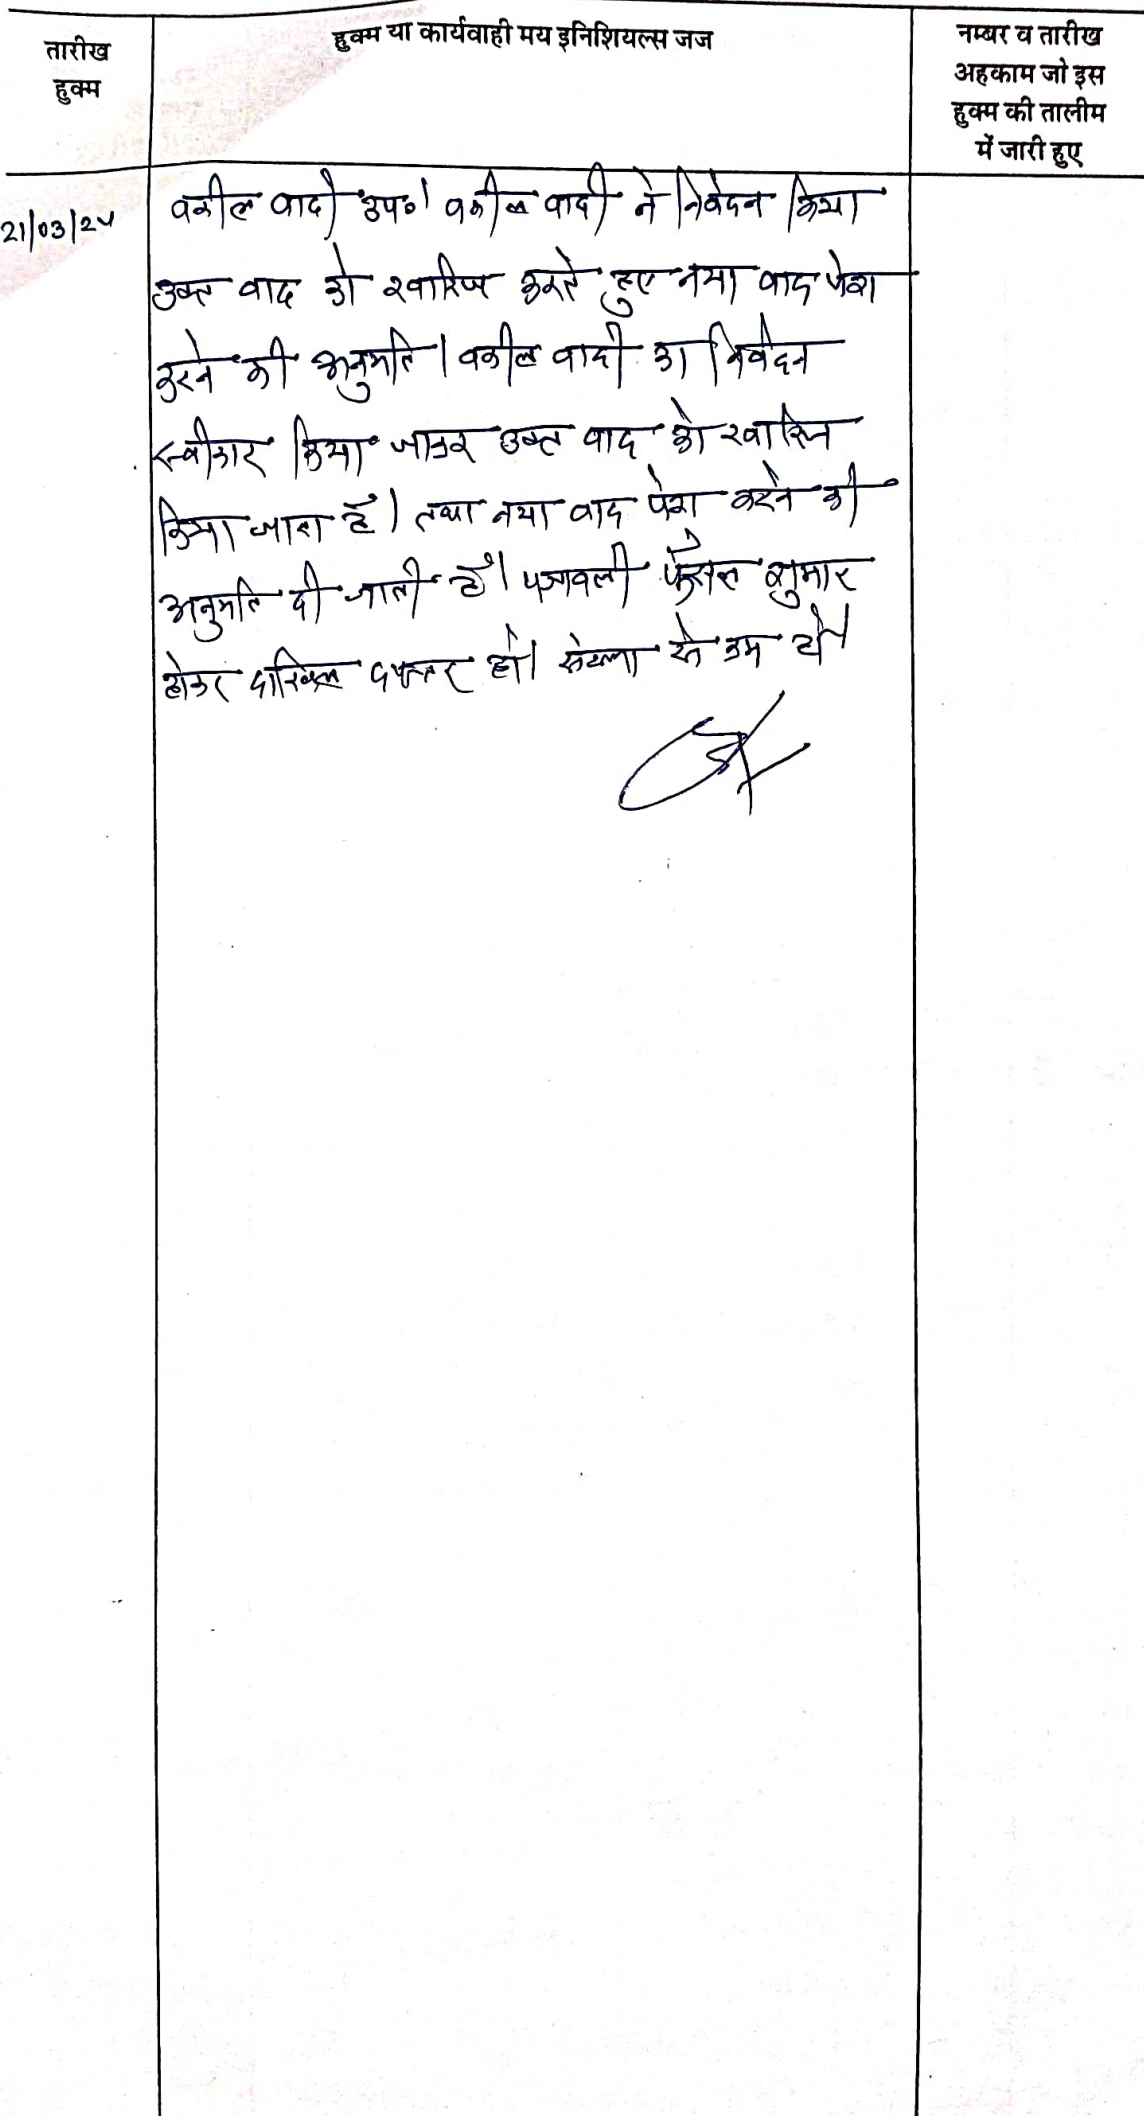 तारीख
हुक्म
हुक्म या कार्यवाही मय इनिशियल्स जज
नम्बर व तारीख
अहकाम जो इस
हुक्म की तालीम
में जारी हुए
21/03/24
वकील वादी उप०। वकील वादी ने निवेदन किया
उक्त वाद को खारिज करते हुए नया वाद पेश
करने की अनुमति। वकील वादी का निवेदन
स्वीकार किया जाकर उक्त वाद को खारिज
किया जाता है। तथा नया वाद पेश करने की
अनुमति दी जाती है। पत्रावली फैसल शुमार
होकर दाखिल दफ्तर हो। संख्या से कम हो।